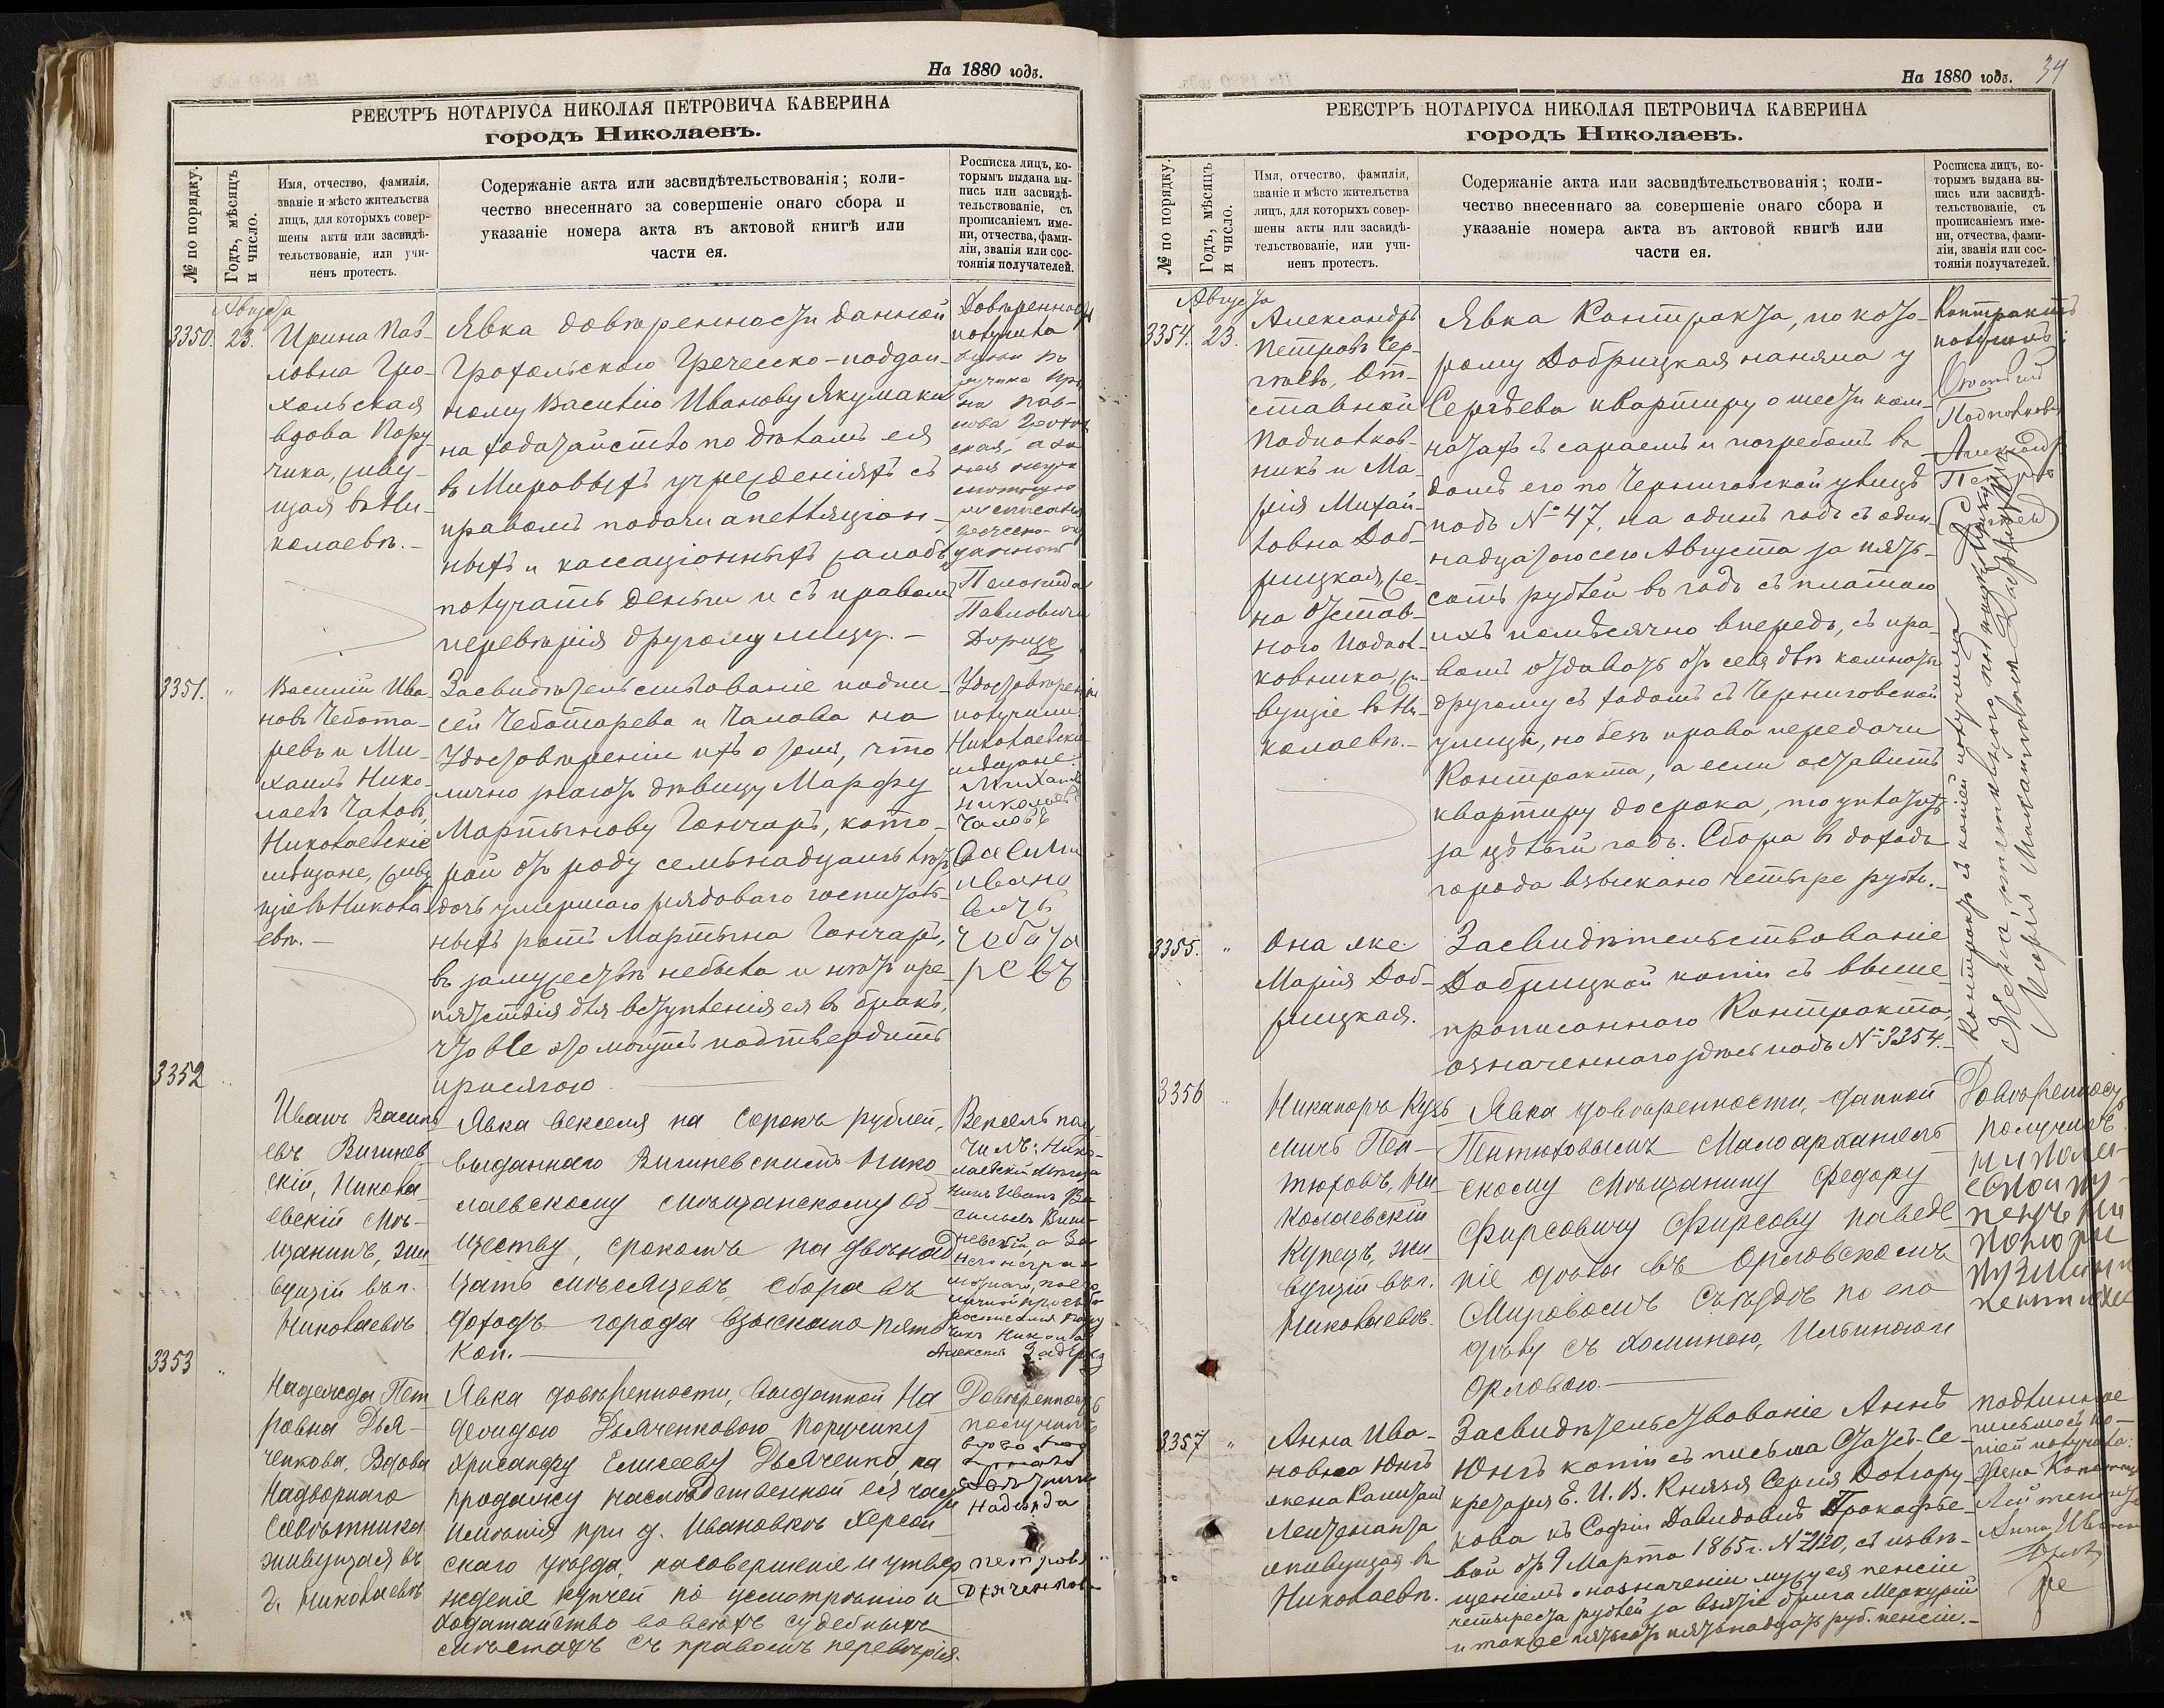 На 1880 годъ.
РЕЕСТРЪ НОТАРІУСА НИКОЛАЯ ПЕТРОВИЧА КАВЕРИНА
городъ Николаевъ.
№ по порядку.
Годъ, мѣсяцъ
и число.
Имя, отчество, фамилія,
званіе и мѣсто жительства
лицъ, для которыхъ совер-
шены акты или засвидѣ-
тельствованіе, или учи-
ненъ протестъ.
Содержаніе акта или засвидѣтельствованія; коли-
чество внесеннаго за совершеніе онаго сбора и
указаніе номера акта въ актовой книгѣ или
части ея.
Росписка лицъ, ко-
торымъ выдана вы-
пись или засвидѣ-
тельствованіе, съ
прописаніемъ име-
ни, отчества, фами-
ліи, званія или сос-
тоянія получателей.
Августа
3350. 23.
Ирина Пав-
ловна Гро-
хольская
вдова Пору
чика, живу-
щая въ Ни-
колаевѣ.-
Явка довѣренности данной
Грохольскою Греческо-поддан-
ному Василію Иванову Якумаки
на ходатайство по дѣламъ ея
въ Мировыхъ учрежденіяхъ съ
правомъ подачи апелляціон-
ныхъ и кассаціонныхъ жалобъ,
получать деньги и съ правомъ
перевѣрія другому лицу.-
Довѣренность
получила
Пелопида
Павловичъ
3351. "
Василій Ива-
новъ Чебота-
ревъ и Ми-
хаилъ Нико-
лаевъ Чаловъ,
Николаевскіе
мѣщане, живу
щіе въ Никола-
евѣ.-
Засвидѣтельствованіе подпи-
сей Чеботарева и Чалова на
Удостовѣреніи ихъ о томъ, что
лично знаютъ дѣвицу Марфу
Мартынову Гончаръ, кото-
рой отъ роду семьнадцать лѣтъ,
дочь умершаго рядоваго госпиталь-
ныхъ ротъ Мартына Гончаръ,
въ замужествѣ небыла и нѣтъ пре-
пятствія для вступленія ея въ бракъ,
что все это могутъ подтвердить
присягою.
Удостовѣреніе
получили:
Николаевскіе
мѣщане:
Михаилъ
Николаевъ
Чаловъ
Василій
Ивано
вичъ
Чебота
ревъ
3352 "
Иванъ Василь
евъ Вишнев-
скій, Никола
евскій мѣ-
щанинъ, жи
вущій въ г.
Николаевѣ
Явка векселя на сорокъ рублей,
выданнаго Вишневскимъ Нико-
лаевскому мѣщанскому об-
ществу, срокомъ на двѣнад
цать мѣсяцевъ, сбора въ
доходъ города взыскано пять
коп.
Вексель полу
чилъ: Нико-
лаевскій мѣща
нинъ Иванъ Ва
сильевъ Виш-
невскій, а за
него неграмотнаго, по его
личной просьбѣ
3353 "
Надежда Пет
ровна Дья-
ченкова, Вдова
Надворнаго
Совѣтника
живущая въ
г. Николаевѣ
Явка довѣренности, выданной На
деждою Дьяченковою Поручику
Хрисанфу Елисееву Дьяченко, на
продажу наслѣдственной ея части
имѣнія при д. Ивановкѣ Херсон
скаго уѣзда, на совершеніе и утвер
жденіе купчей по усмотрѣнію и
ходатайство во всѣхъ судебныхъ
мѣстахъ съ правомъ перевѣрія.
Довѣренность
получила
Надежда
Петровна
Дьяченкова
На 1880 годъ.
34
РЕЕСТРЪ НОТАРІУСА НИКОЛАЯ ПЕТРОВИЧА КАВЕРИНА
городъ Николаевъ.
№ по порядку.
Годъ, мѣсяцъ
и число.
Имя, отчество, фамилія,
званіе и мѣсто жительства
лицъ, для которыхъ совер-
шены акты или засвидѣ-
тельствованіе, или учи-
ненъ протестъ.
Содержаніе акта или засвидѣтельствованія; коли-
чество внесеннаго за совершеніе онаго сбора и
указаніе номера акта въ актовой книгѣ или
части ея.
Росписка лицъ, ко-
торымъ выдана вы-
пись или засвидѣ-
тельствованіе, съ
прописаніемъ име-
ни, отчества, фами-
ліи, званія или сос-
тоянія получателей.
Августа
3354. 23.
Александръ
Петровъ Сер-
гѣевъ, От-
ставной
Подполков-
никъ и Ма-
рія Михай-
ловна Доб-
рицкая, же-
на Отстав-
наго Подпол-
ковника, жи-
вущіе въ Ни-
колаевѣ.-
Явка Контракта, по кото-
рому Добрицкая наняла у
Сергѣева квартиру о шести ком-
натахъ съ сараемъ и погребомъ въ
домѣ его по Черниговской улицѣ
подъ № 47, на одинъ годъ съ один-
надцатаго сего Августа за пять-
сотъ рублей въ годъ съ платою
ихъ помѣсячно впередъ, съ пра-
вомъ отдавать отъ себя двѣ комнаты
другому съ ходомъ съ Черниговской
улицы, но безъ права передачи
Контракта, а если оставитъ
квартиру до срока, то уплатитъ
за цѣлый годъ. Сбора въ доходъ
города взыскано четыре рубл.-
Контрактъ
получилъ:
Отставной
Подполковн
Александръ
Петровъ
Сергѣевъ
Контрактъ съ копіей получила
Жена отставнаго подполковника
Марія Михайловна Добрицкая
3355. "
Она же
Марія Доб-
рицкая.
Засвидѣтельствованіе
Добрицкой копіи съ выше-
прописаннаго Контракта,
означеннаго здѣсь подъ № 3354.-
3356 "
Никаноръ Кузь
мичъ Пен-
тюховъ, Ни-
колаевскій
Купецъ, жи
вущій въ г.
Николаевѣ.
Явка довѣренности, данной
Пентюховымъ Малоархангель
скому мѣщанину Федору
Фирсовичу Фирсову на веде
ніе дѣла въ Орловскомъ
Мировомъ Съѣздѣ по его
дѣлу съ Хоминою, Ильиною и
Орловою.
Довѣренность
получилъ
3357 "
Анна Ива-
новна Юнгъ
жена Капитан
Лейтенанта
живущая въ
Николаевѣ.
Засвидѣтельствованіе Аннѣ
Юнгъ копіи съ письма Статсъ-Се-
кретаря Е. И. В. Князя Сергія Долгору-
кова къ Софіи Давидовнѣ Прокофье-
вой отъ 9 Марта 1865 г. № 2120, съ извѣ-
щеніемъ о назначеніи мужу ея пенсіи
четыреста рублей за взятіе брига Меркурій
и также пятьсотъ пятьнадцать руб. пенсіи.-
Подлинное
письмо съ ко-
піей получила:
Жена Капитанъ
Лейтенанта
Анна Ивановна
Юнгъ